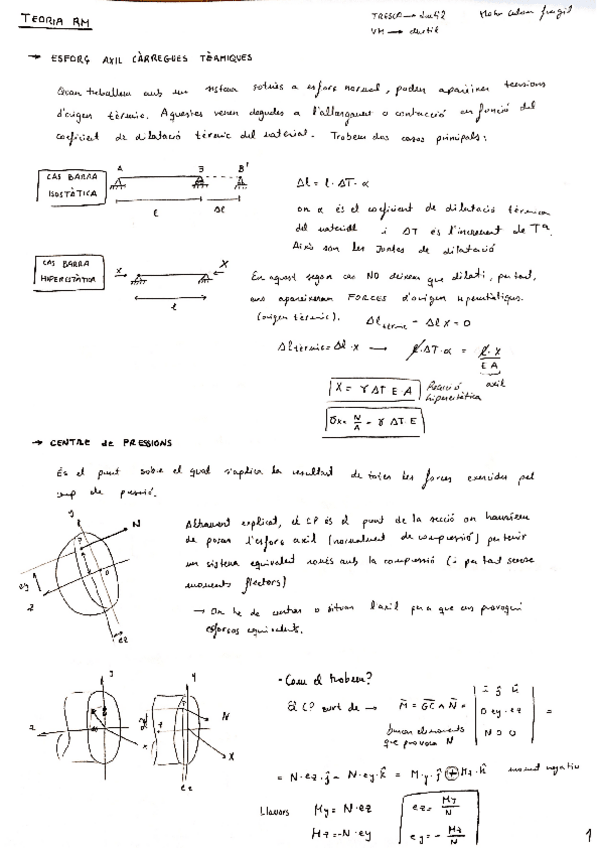 TEORIA RM
TRESCA → dúctil
VM → dúctil
→ ESFORÇ AXIL CÀRREGUES TÈRMIQUES
Quan treballem amb un sistema sotmès a esforç normal, poden aparèixer tensions
d'origen tèrmic. Aquestes venen degudes a l'allargament o contracció en funció del
coeficient de dilatació tèrmic del material. Trobem dos casos principals:
CAS BARRA
ISOSTÀTICA
A B B'
l Δl
Δl = l · ΔT · α
on α és el coeficient de dilatació tèrmica
del material i ΔT és l'increment de Tª.
Això són les Juntes de dilatació
CAS BARRA
HIPERESTÀTICA
x X
l
En aquest segon cas NO deixem que dilati, per tant,
ens apareixeran FORCES d'origen hiperestàtiques.
(origen tèrmic). Δl tèrmic - Δl x = 0
Δl tèrmic = Δl x → l · ΔT · α = l · x / E A
axil
X = γ ΔT E A
Reacció
hiperestàtica
σx = N/A = γ ΔT E
→ CENTRE de PRESSIONS
És el punt sobre el qual s'aplica la resultant de totes les forces exercides pel
camp de pressió.
y N
Altrament explicat, el CP és el punt de la secció on hauríem
de posar l'esforç axil (normalment de compressió) per tenir
un sistema equivalent només amb la compressió (i per tant sense
moments flectors)
ey
z
ez
→ On he de centrar o situar l'axil per a que em provoqui
esforços equivalents.
- Com el trobem?
El CP surt de → M = GC ∧ N = | i j k | 0 ey ez | N 0 0 | =
que provoca N
= N · ez · j - N · ey · k = M y · j + Mz · k
negatiu
Llavors My = N · ez
Mz = -N · ey
ez = My / N
ey = - Mz / N
1